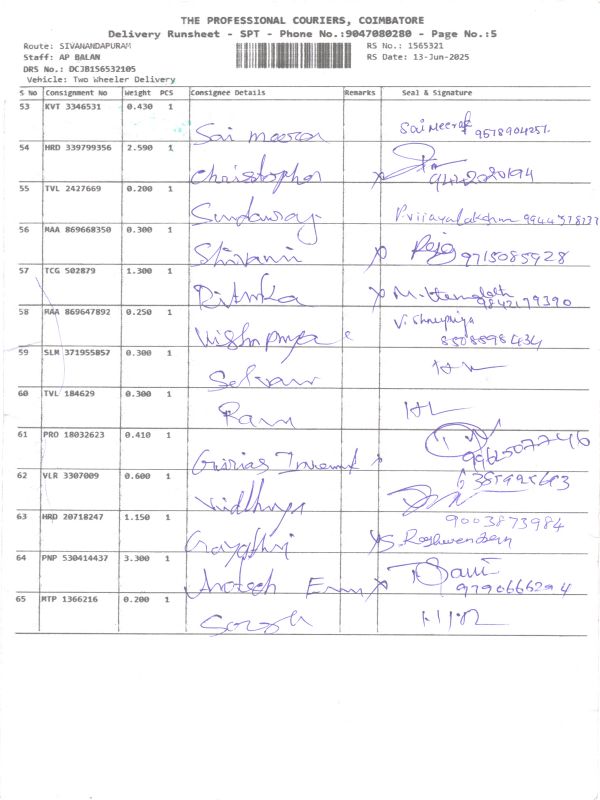 THE PROFESSIONAL COURIERS, COIMBATORE
Delivery Runsheet - SPT - Phone No.:9047080280 - Page No.:5
Route: SIVANANDAPURAM RS No.: 1565321
Staff: AP BALAN RS Date: 13-Jun-2025
DRS No.: DCJB156532105
Vehicle: Two Wheeler Delivery
S No Consignment No Weight PCS Consignee Details Remarks Seal & Signature
53 KVT 3346531 0.430 1
Sai meera Sai Meera 9578904251
54 HRD 339799356 2.590 1
Christopher 9442020194
55 TVL 2427669 0.200 1
Sundarraj P.vijayalakshmi 9944578737
56 MAA 869668350 0.300 1
Shivani 9715085928
57 TCG 502879 1.300 1
Ritika M. Hemalath 9842179390
58 MAA 869647892 0.250 1
Vishnpriya Vishnupriya
8508598434
59 SLM 371955857 0.300 1
Selvam
60 TVL 184629 0.300 1
Ram
61 PRO 18032623 0.410 1
Girias 9962507746
62 VLR 3307009 0.600 1 6385925683
Vidhya
63 HRD 20718247 1.150 1 9003873984
Gayathri S. Raghavendran
64 PNP 530414437 3.300 1
9790666294
65 MTP 1366216 0.200 1